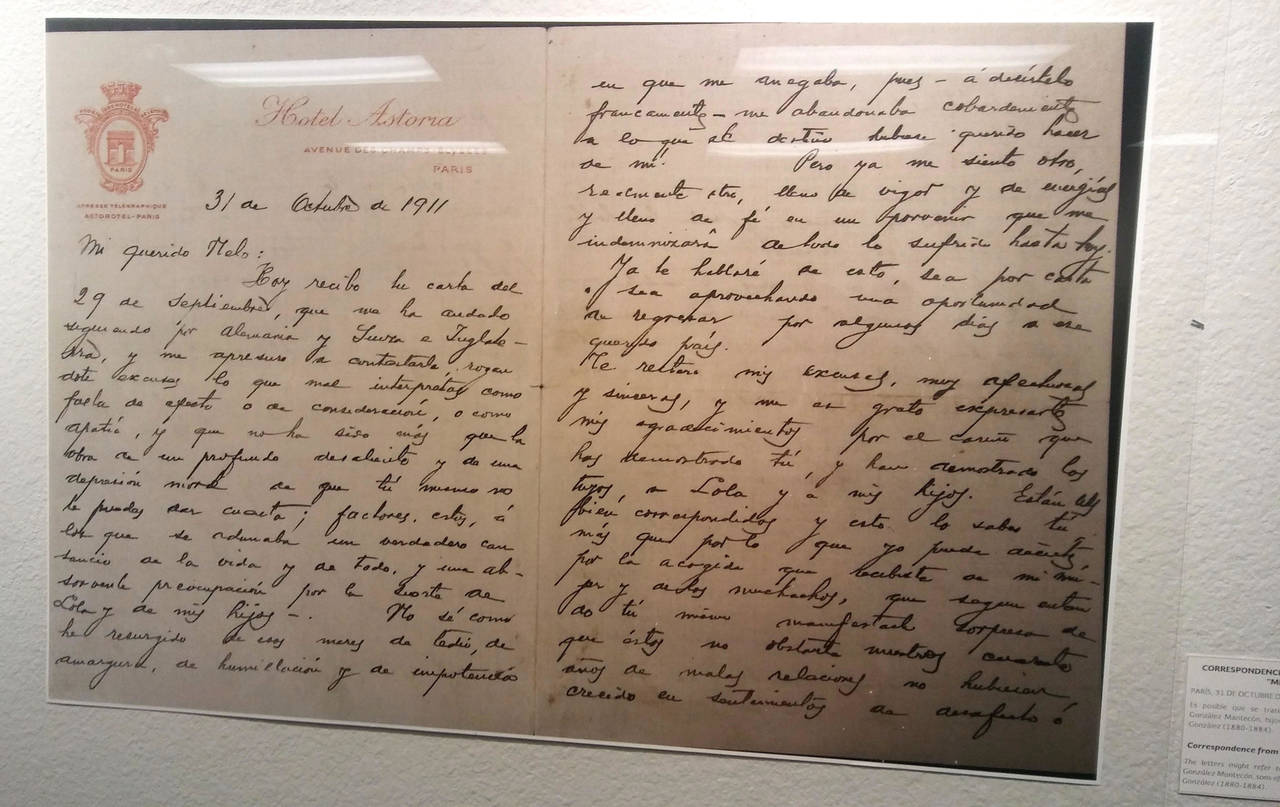 GRAND HOTEL
PARIS
ADRESSE TÉLÉGRAPHIQUE
ASTOROTEL-PARIS
Hotel Astoria
AVENUE DES CHAMPS-ELYSÉES
PARIS
31 de Octubre de 1911
Mi querido Melo:
Hoy recibo tu carta del
29 de Septiembre, que me ha andado
siguiendo por Alemania y Suiza e Inglate-
rra, y me apresuro a contestarla, rogan
dote excuses lo que mal interpretas como
falta de afecto o de consideración, o como
apatía, y que no ha sido más que la
obra de un profundo desaliento y de una
depresión moral de que tú mismo no
te puedes dar cuenta; factores, estos, á
los que se adunaba un verdadero can
sancio de la vida y de todo, y una ab-
sorvente preocupación por la suerte de
Lola y de mis hijos -. No sé como
he resurgido de esos mares de tedio, de
amargura, de humillación y de impotencia
en que me anegaba, pues - á decírtelo
francamente - me abandonaba cobardemente
a lo que el destino hubiese querido hacer
de mí. Pero ya me siento otro,
realmente otro, lleno de vigor y de energías
y lleno de fé en un porvenir que me
indemnizará de todo lo sufrido hasta hoy.
Ya te hablaré de esto, sea por carta
o sea aprovechando una oportunidad
de regresar por algunos días a ese
querido país.
Te reitero mis excusas, muy afectuosas
y sinceras, y me es grato expresarte
mis agradecimientos por el cariño que
has demostrado tú, y han demostrado los
tuyos, a Lola y á mis hijos. Están
bien correspondidos y esto lo sabes tú
más que por lo que yo pueda decirte,
por la acogida que recibiste de mi mu-
jer y de los muchachos, que segun entien
do tú mismo manifestaste sorpresa de
que éstos no obstante nuestros cuarenta
años de malas relaciones no hubieran
crecido en sentimientos de desafecto ó
CORRESPONDENCE
PARÍS, 31 DE OCTUBRE D
Es posible que se trat
González Mantecón, hijo
González (1880-1884).
Correspondence from
The letters might refer to
González Mantecón, sons o
González (1880-1884)